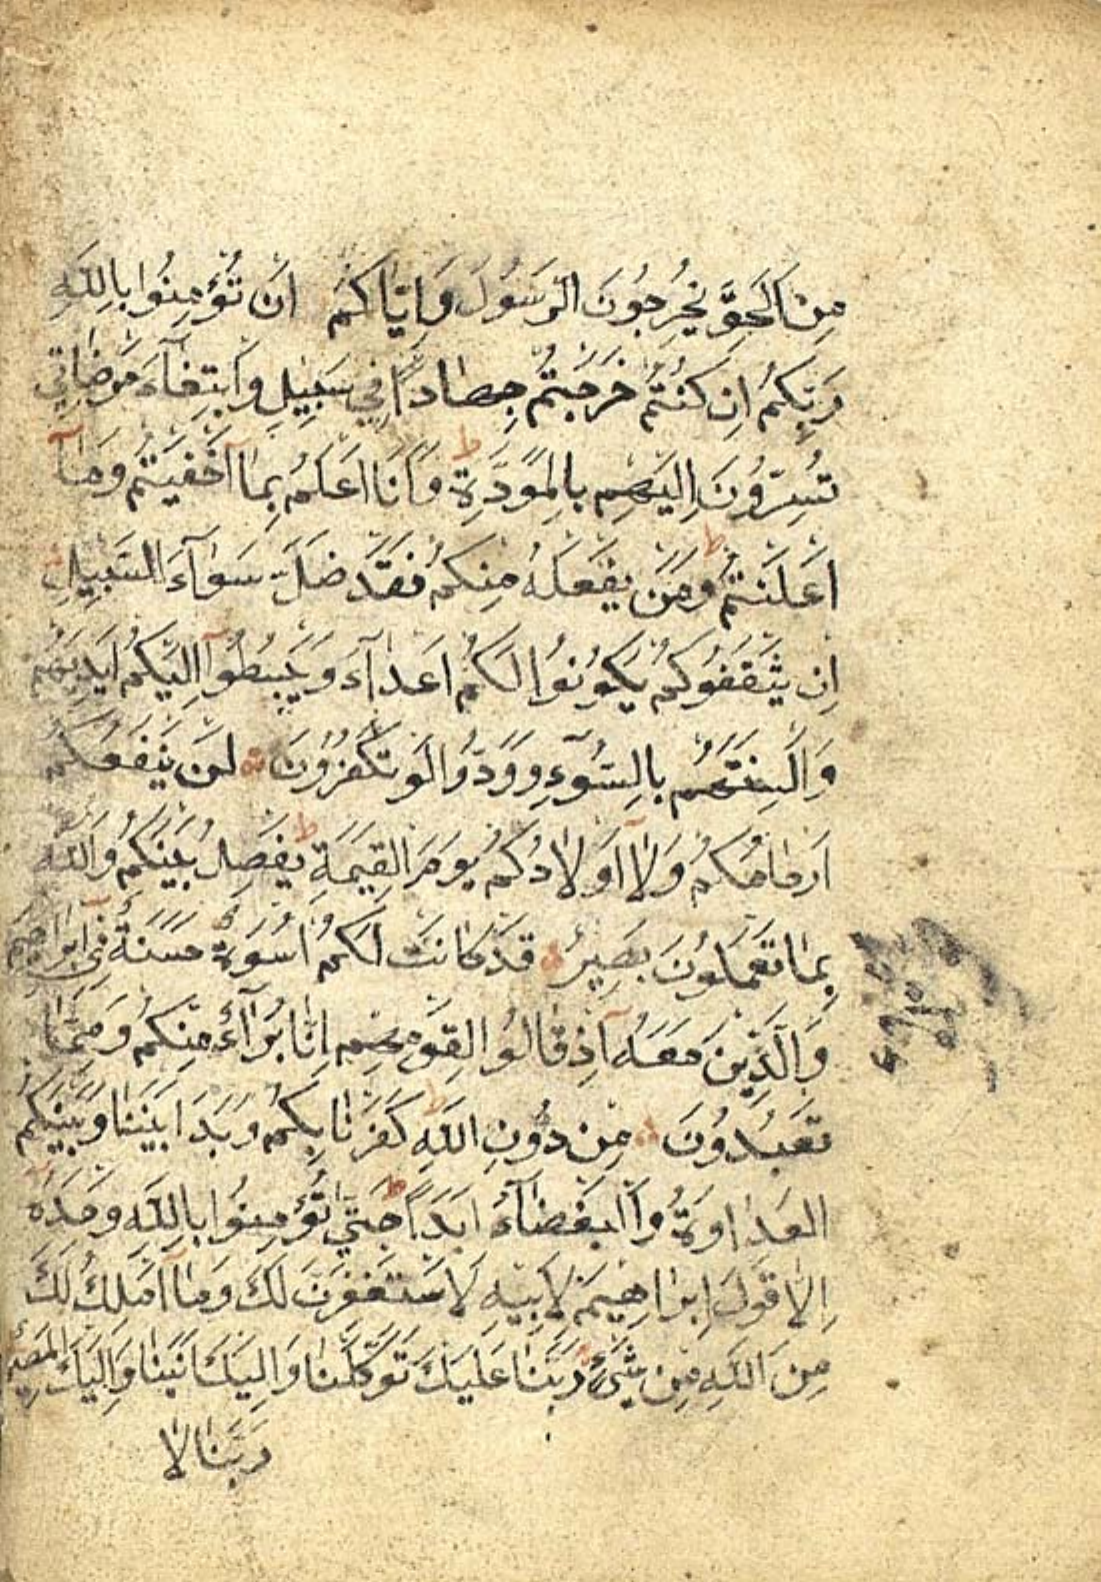 مِنَ الْحَقِّ يُخْرِجُونَ الرَّسُولَ وَاِيَّاكُمْ اَنْ تُؤْمِنُوا بِاللّٰهِ
رَبِّكُمْ اِنْ كُنْتُمْ خَرَجْتُمْ جِهَادًا فِي سَبِيلِي وَابْتِغَآءَ مَرْضَاتِي
تُسِرُّونَ اِلَيْهِمْ بِالْمَوَدَّةِ ط وَاَنَا اَعْلَمُ بِمَآ اَخْفَيْتُمْ وَمَآ
اَعْلَنْتُمْ ط وَمَنْ يَفْعَلْهُ مِنْكُمْ فَقَدْ ضَلَّ سَوَآءَ السَّبِيلِ
اِنْ يَثْقَفُوكُمْ يَكُونُوا لَكُمْ اَعْدَآءً وَيَبْسُطُوآ اِلَيْكُمْ اَيْدِيَهُمْ
وَاَلْسِنَتَهُمْ بِالسُّوٓءِ وَوَدُّوا لَوْ تَكْفُرُونَ لَنْ يَنْفَعَكُمْ
اَرْحَامُكُمْ وَلَآ اَوْلَادُكُمْ يَوْمَ الْقِيٰمَةِ ط يَفْصِلُ بَيْنَكُمْ وَاللّٰهُ
بِمَا تَعْمَلُونَ بَصِيرٌ قَدْ كَانَتْ لَكُمْ اُسْوَةٌ حَسَنَةٌ فِيٓ اِبْرَاهِيمَ
وَالَّذِينَ مَعَهُ اِذْ قَالُوا لِقَوْمِهِمْ اِنَّا بُرَآءُ مِنْكُمْ وَمِمَّا
تَعْبُدُونَ مِنْ دُونِ اللّٰهِ ط كَفَرْنَا بِكُمْ وَبَدَا بَيْنَنَا وَبَيْنَكُمُ
الْعَدَاوَةُ وَالْبَغْضَآءُ اَبَدًا ط حَتّٰى تُؤْمِنُوا بِاللّٰهِ وَحْدَهُ
اِلَّا قَوْلَ اِبْرَاهِيمَ لِاَبِيهِ لَاَسْتَغْفِرَنَّ لَكَ وَمَآ اَمْلِكُ لَكَ
مِنَ اللّٰهِ مِنْ شَيْءٍ رَبَّنَا عَلَيْكَ تَوَكَّلْنَا وَاِلَيْكَ اَنَبْنَا وَاِلَيْكَ الْمَصِيرُ
رَبَّنَا لَا